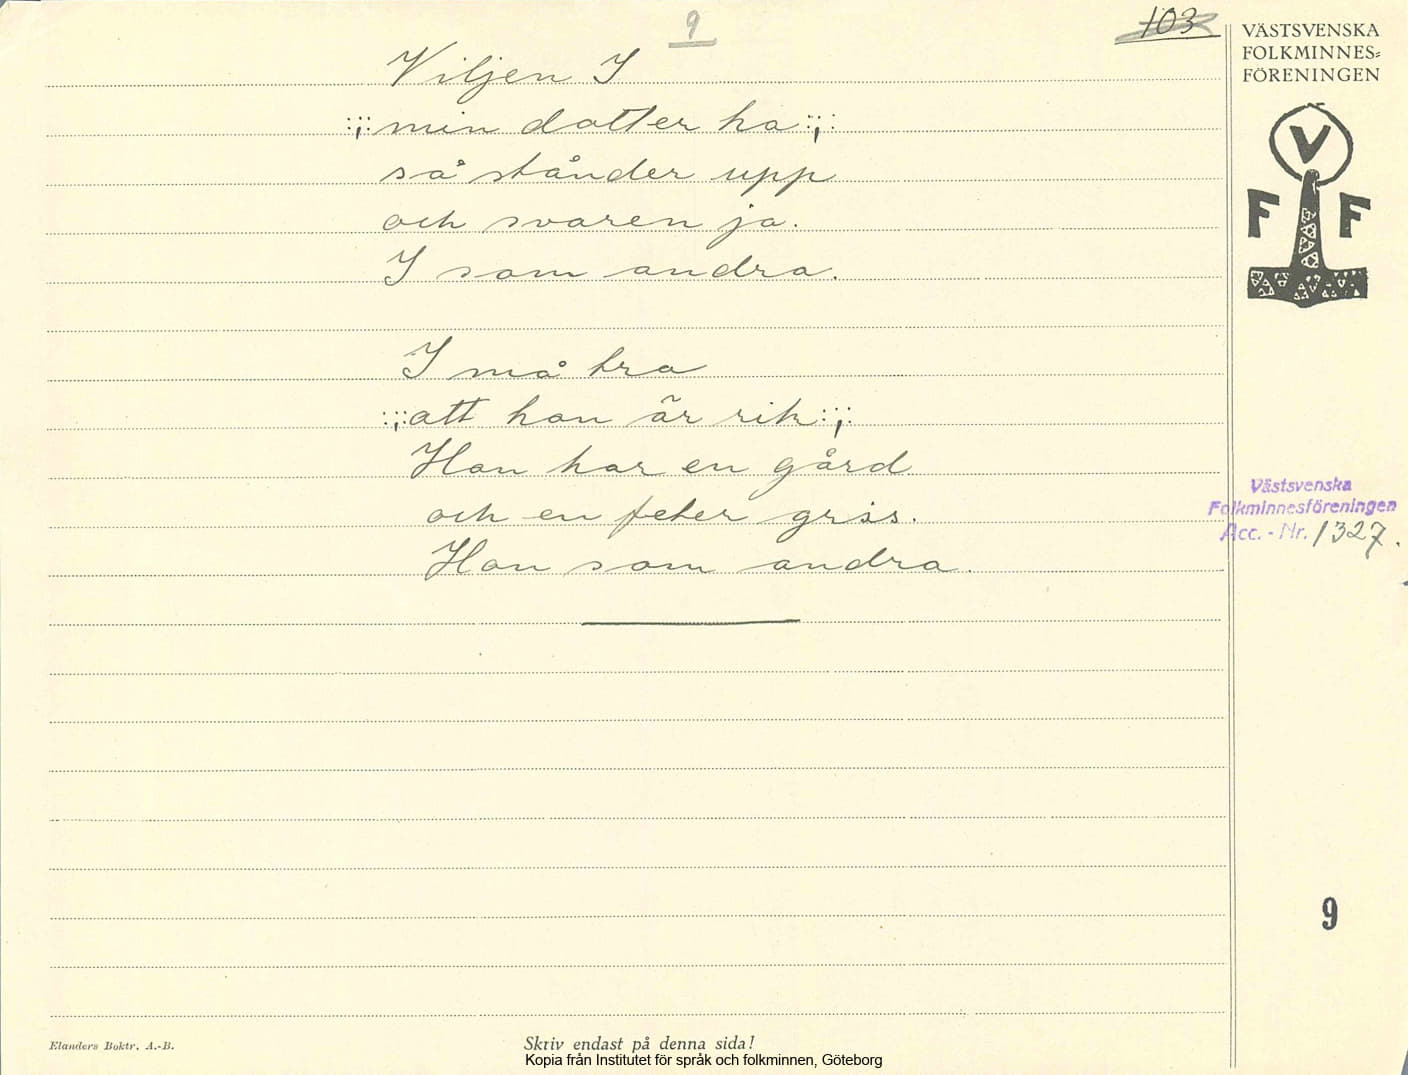 9
103
VÄSTSVENSKA
FOLKMINNES=
FÖRENINGEN
V
F F
Viljen I
:;: min dotter ha :;:
så stånder upp
och svaren ja.
I som andra.
I må tro
:;: att han är rik :;:
Han har en gård
och en feter gris.
Han som andra.
Västsvenska
Folkminnesföreningen
Acc. - Nr. 1327.
9
Elanders Boktr. A.-B.
Skriv endast på denna sida!
Kopia från Institutet för språk och folkminnen, Göteborg